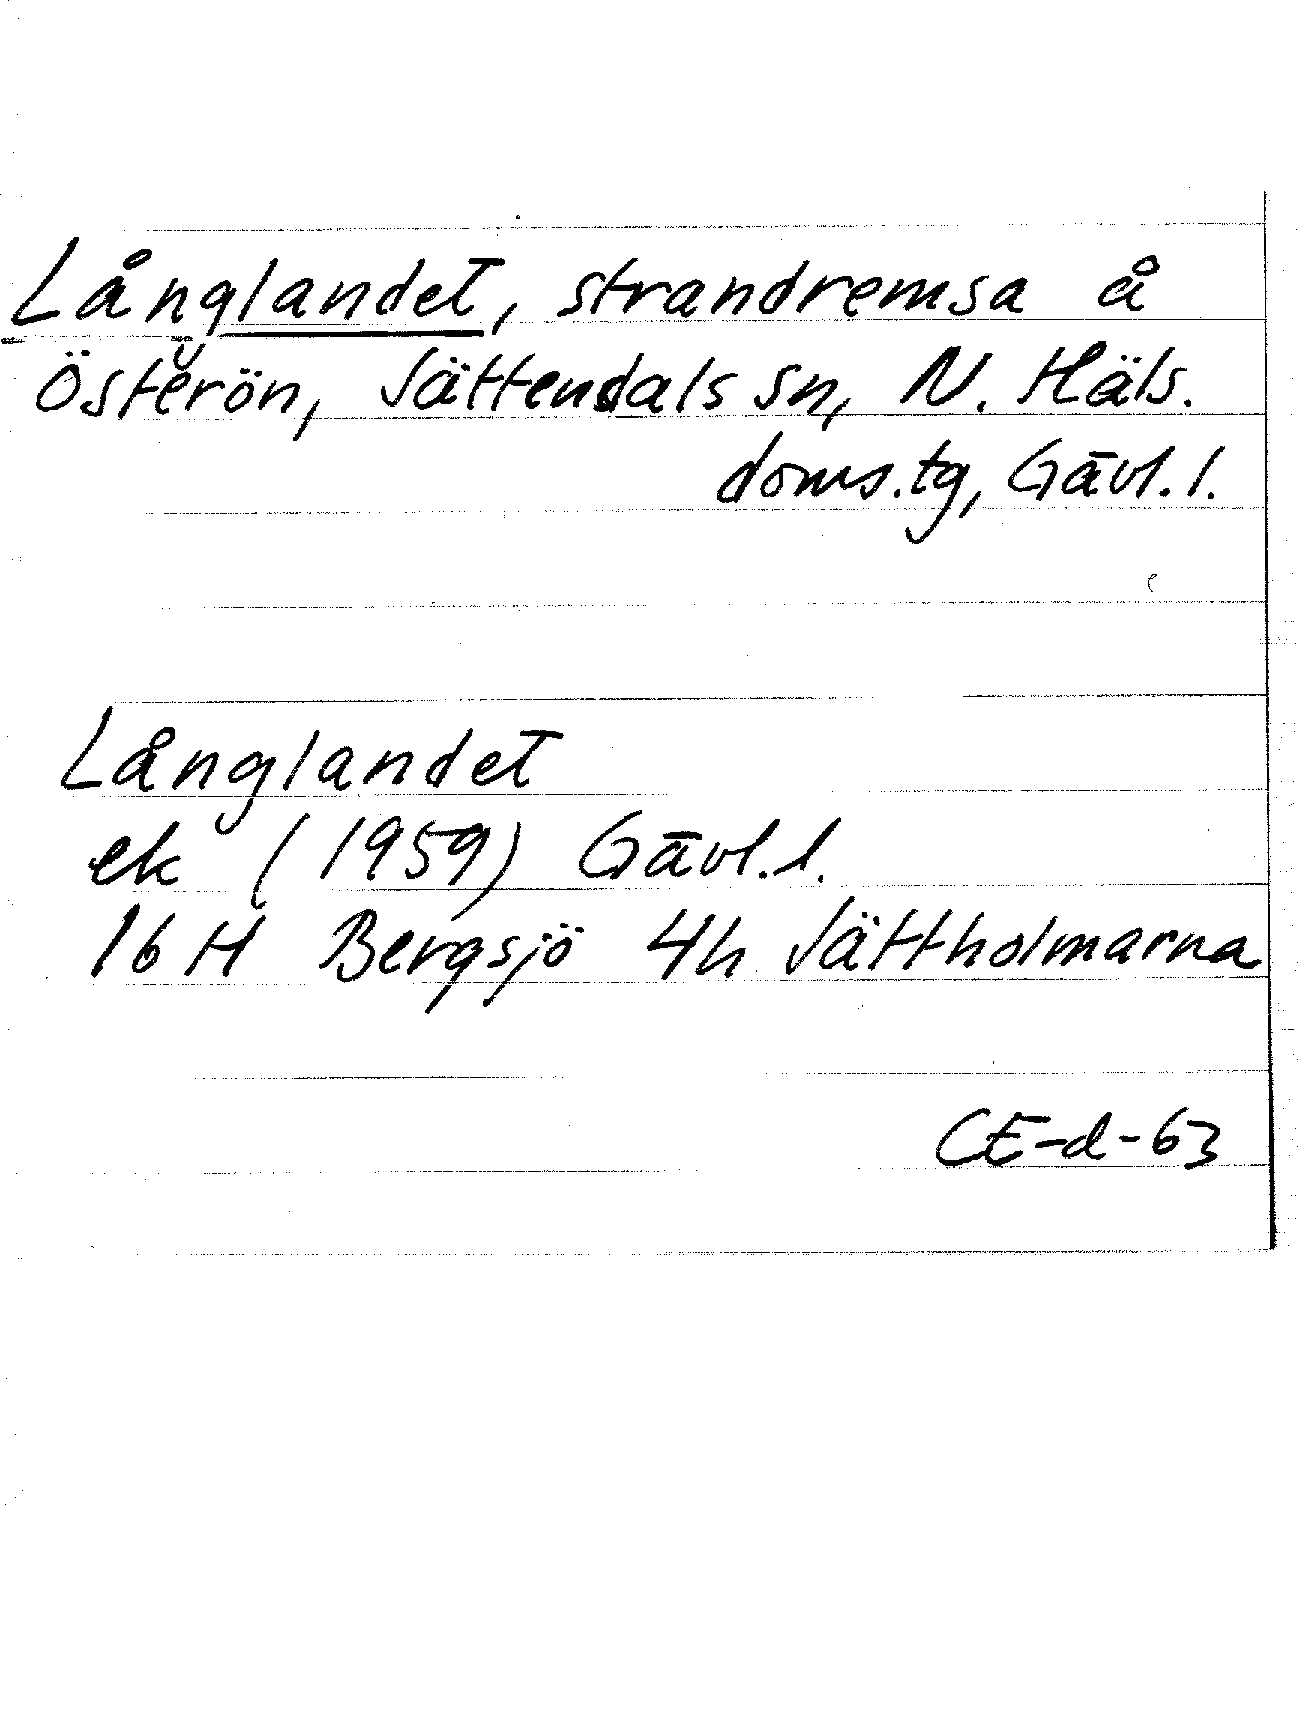 Långlandet, strandremsa å
Österön, Jättendals sn, N. Häls.
doms.tg, Gävl.l.
Långlandet
ek (1959) Gävl.l.
16 H Bergsjö 4h Jättholmarna
CE-d-63